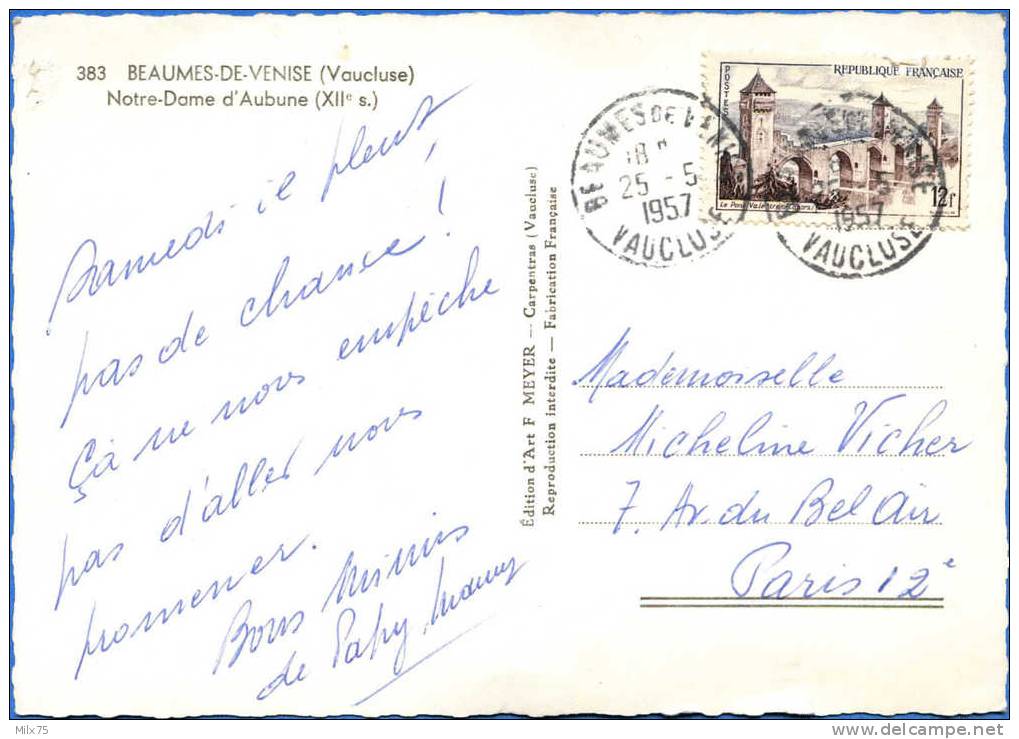 383 BEAUMES-DE-VENISE (Vaucluse)
Notre-Dame d'Aubune (XIIe s.)
Samedi il pleut,
pas de chance !
Çà ne nous empêche
pas d'aller nous
promener.
Bons Mimis
de Papy Mamy
Édition d'Art F MEYER — Carpentras (Vaucluse)
Reproduction interdite — Fabrication Française
POSTES
REPUBLIQUE FRANÇAISE
Le Pont Valentré - Cahors
12f
BEAUMES DE VENISE
18
25 - 5
1957
VAUCLUSE
1957
VAUCLUSE
Mademoiselle
Micheline Vicher
7, Av. du Bel Air
Paris 12e
Milx75
www.delcampe.net